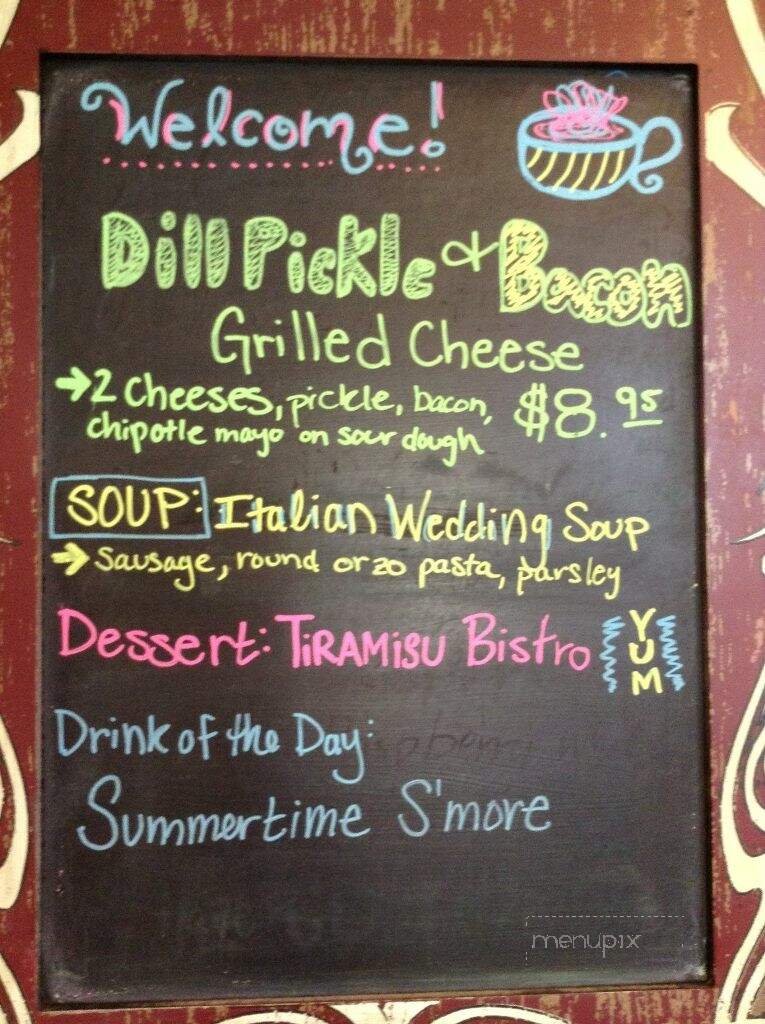 Welcome!
Dill Pickle & Bacon
Grilled Cheese
→ 2 Cheeses, pickle, bacon, $8.95
chipotle mayo on sour dough
SOUP: Italian Wedding Soup
→ Sausage, round orzo pasta, parsley
Dessert: TiRAMiSU Bistro YUM
Drink of the Day:
Summertime S'more
menupix